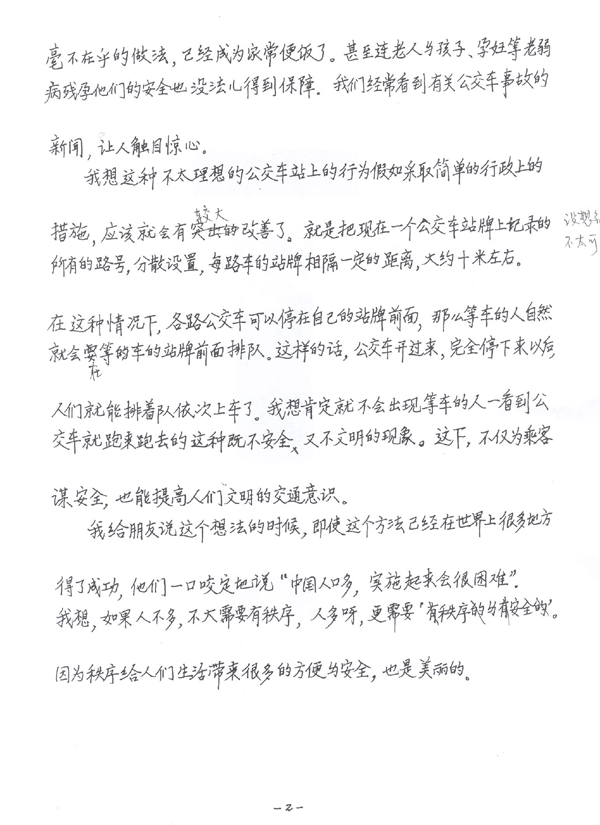 毫不在乎的做法，已经成为家常便饭了。甚至连老人与孩子、孕妇等老弱
病残孕他们的安全也没法儿得到保障．我们经常看到有关公交车事故的
新闻，让人触目惊心。
我想这种不太理想的公交车站上的行为假如采取简单的行政上的
较大
措施，应该就会有突出的改善了。就是把现在一个公交车站牌上记录的
没想
所有的路号，分散设置，每路车的站牌相隔一定的距离，大约十米左右。
不太可
在这种情况下，各路公交车可以停在自己的站牌前面，那么等车的人自然
就会要等的车的站牌前面排队。这样的话，公交车开过来，完全停下来以后，
在
人们就能排着队依次上车了。我想肯定就不会出现等车的人一看到公
交车就跑来跑去的这种既不安全、又不文明的现象。这下，不仅为乘客
谋安全，也能提高人们文明的交通意识。
我给朋友说这个想法的时候，即使这个方法已经在世界上很多地方
得了成功，他们一口咬定地说“中国人口多，实施起来会很困难”．
我想，如果人不多，不大需要有秩序，人多呀，更需要“有秩序的与有安全的”。
因为秩序给人们生活带来很多的方便与安全，也是美丽的。
-2-